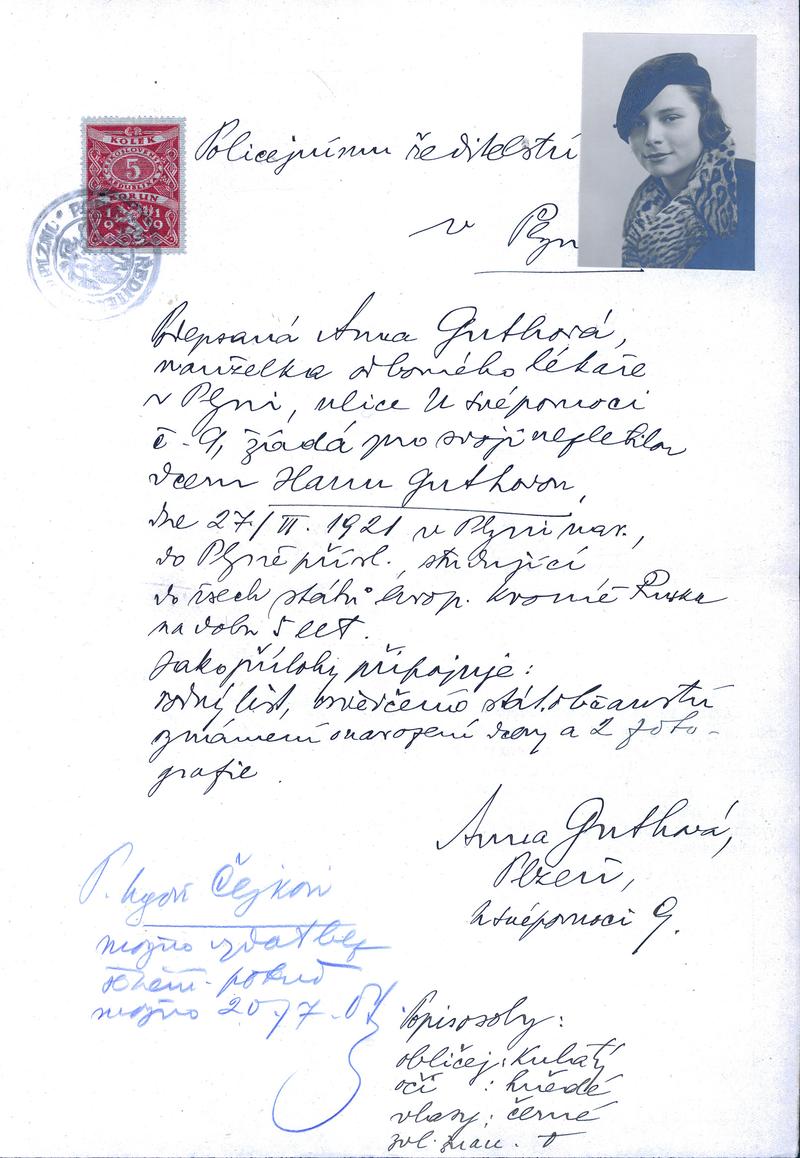 KOLEK
5
KORUN
1919
Policejnímu ředitelství
v Plzn
Podepsaná Anna Guthová,
manželka odborného lékaře
v Plzni, ulice U svépomoci
č. 9, žádá pro svoji nezletilou
dceru Hanu Guthovou,
dne 27/VI. 1921 v Plzni nar.,
do Plzně přísl., studující
do všech států évrop. kromě Ruska
na dobu 5 let.
Jako přílohy připojuje:
rodný list, osvědčení o stát. občanství
oznámení o narození dcery a 2 foto-
grafie.
Anna Guthová,
Plzeň,
U svépomoci 9.
P. Čejkovi
možno vydat bez
pokud
možno 20/7.
Popis osoby:
obličej: kulatý
oči : hnědé
vlasy: černé
zvl. znam. 0